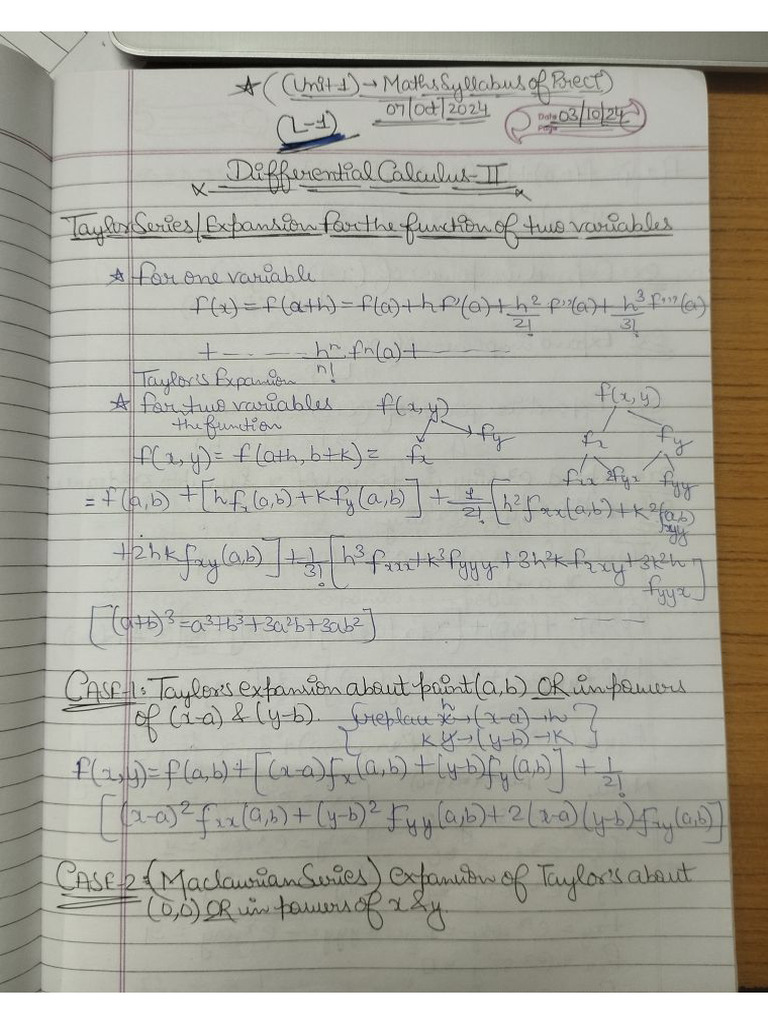 ☆ ((Unit 1) → Maths Syllabus of Prect)
07/Oct/2024
(L-1)
Date 03/10/24
Page
Differential Calculus-II
Taylor Series/Expansion for the function of two variables
☆ for one variable
f(x) = f(a+h) = f(a) + h f'(a) + h²/2! f''(a) + h³/3! f'''(a)
+ ------- hⁿ/n! fn(a) + -------
Taylor's Expansion
☆ for two variables f(x,y) f(x,y)
the function fx fy fx fy
f(x,y) = f(a+h, b+k) = fxx 2fyx fyy
= f(a,b) + [h fx(a,b) + k fy(a,b)] + 1/2! [h² fxx(a,b) + k² (a,b)
+ 2hk fxy(a,b)] + 1/3! [h³ fxxx + k³ fyyy + 3h²k fxxy + 3k²h
fyyx]
[(a+b)³ = a³+b³+3a²b+3ab²] ----
CASE-1: Taylor's expansion about point (a,b) OR in powers
of (x-a) & (y-b). {replace h x → (x-a) → h
k y → (y-b) → k}
f(x,y) = f(a,b) + [(x-a) fx(a,b) + (y-b) fy(a,b)] + 1/2!
[(x-a)² fxx(a,b) + (y-b)² fyy(a,b) + 2(x-a)(y-b) fxy(a,b)]
CASE-2 : (Maclaurian Series) expansion of Taylor's about
(0,0) OR in powers of x & y.